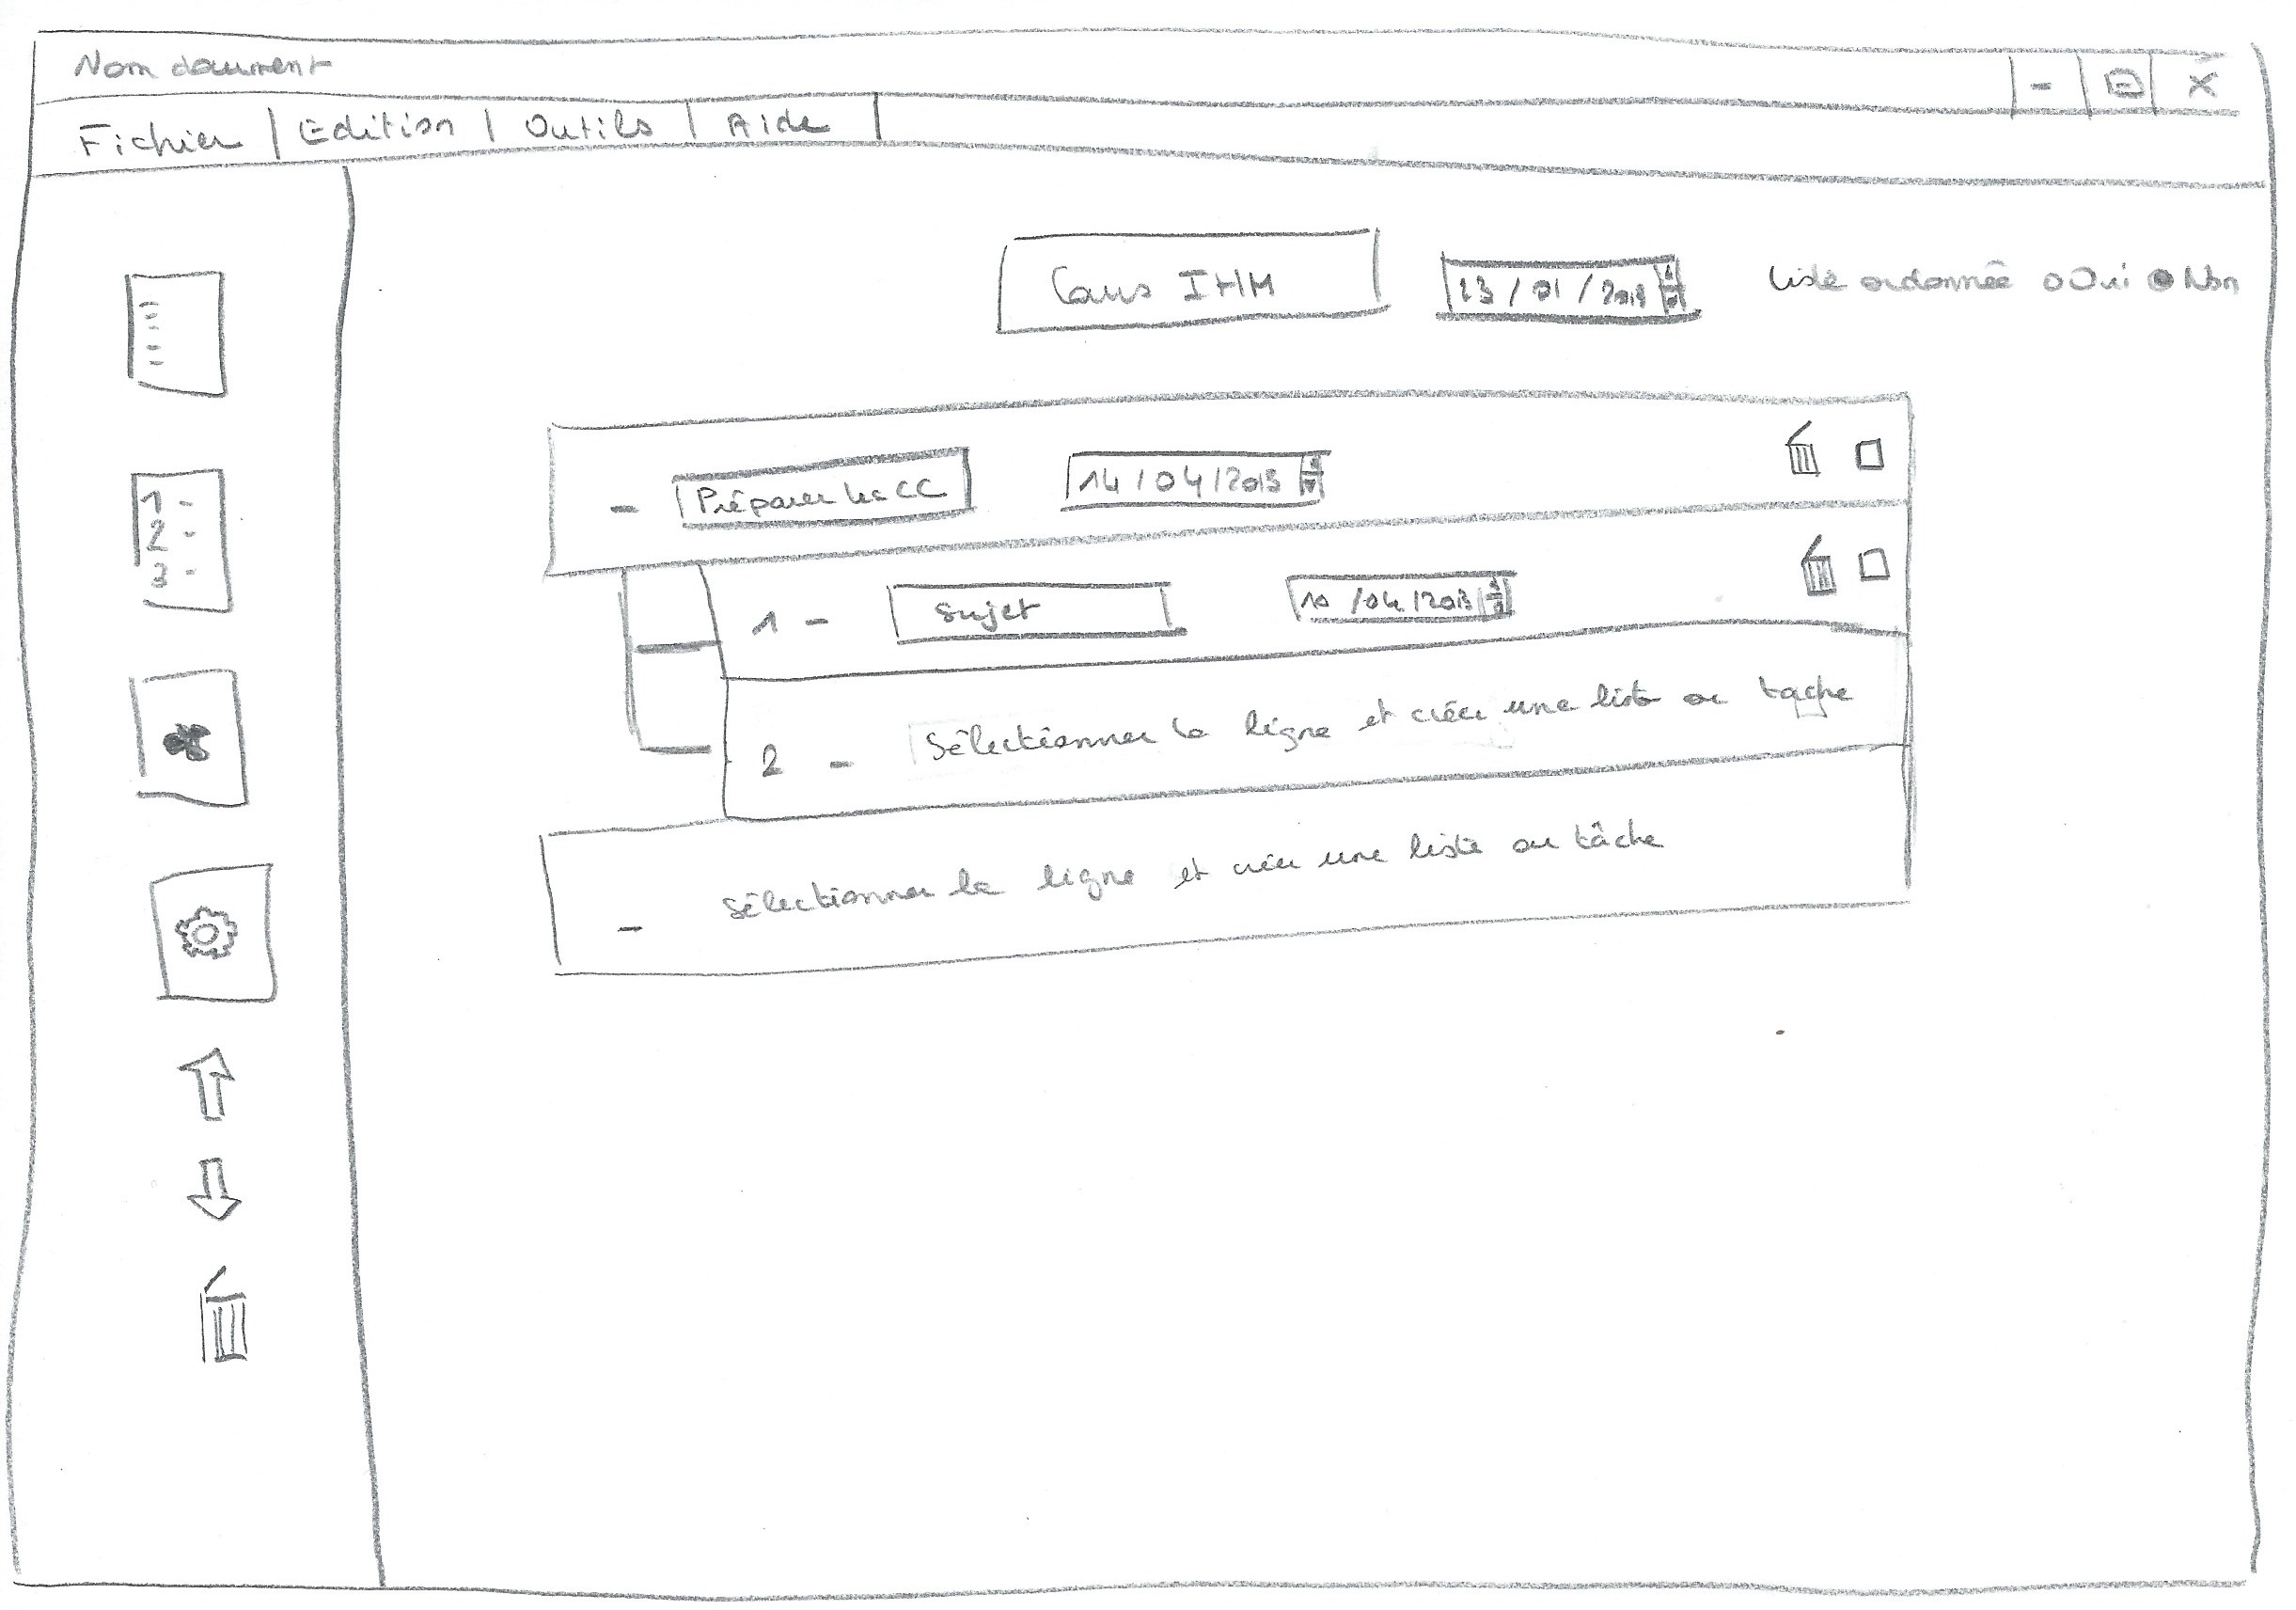 Nom document
- X
Fichier | Edition | Outils | Aide |
Cours IHM 23/01/2013 liste ordonnée Oui Non
1 -
2 -
3 -
- Préparer les CC 14/04/2013
1 - Sujet 10/04/2013
2 - Sélectionner la ligne et créer une liste ou tâche
- Sélectionner la ligne et créer une liste ou tâche